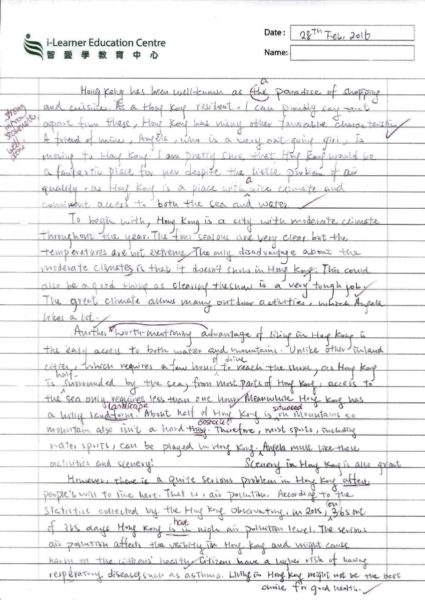 i-Learner Education Centre
智愛學教育中心
Date: 28th Feb. 2016
Name:
a
Hong Kong has been well-known as the paradise of shopping
and cuisine. As a Hong Kong resident, I can proudly say that
apart from these, Hong Kong has many other favourable characteristics.
A friend of mine, Angela, who is a very out-going girl, is
moving to Hong Kong. I am pretty sure that Hong Kong would be
a fantastic place for her despite the little problem of air
quality, as Hong Kong is a place with nice climate and
convenient access to both the sea and water.
To begin with, Hong Kong is a city with moderate climate
throughout the year. The four seasons are very clear but the
temperatures are not extreme. The only disadvantage about the
moderate climates is that it doesn't snow in Hong Kong. This could
also be a good thing as clearing the snow is a very tough job.
The great climate allows many outdoor activities, which Angela
likes a lot.
Another worth-mentioning advantage of living in Hong Kong is
the easy access to both water and mountains. Unlike other inland
cities, which requires a few hours of drive to reach the shore, as Hong Kong
half
is surrounded by the sea, from most parts of Hong Kong, access to
the sea only requires less than one hour. Meanwhile Hong Kong has
landscape
situated
a hilly landform. About half of Hong Kong is in mountains so
obstacle
mountain also isn't a hard thing. Therefore, most sports, including
water sports, can be played in Hong Kong. Angela must like these
activities and scenery! Scenery in Hong Kong is also great
However, there is a quite serious problem in Hong Kong affects
people's will to live here. That is, air pollution. According to the
statistics collected by the Hong Kong Observatory, in 2015, 365 out
have
of 365 days Hong Kong is in high air pollution level. The serious
air pollution affects the visibility in Hong Kong and might cause
harm to the citizens' health. Citizens have a higher risk of having
respiratory diseases such as asthma. Living in Hong Kong might not be the best
choice for good health.